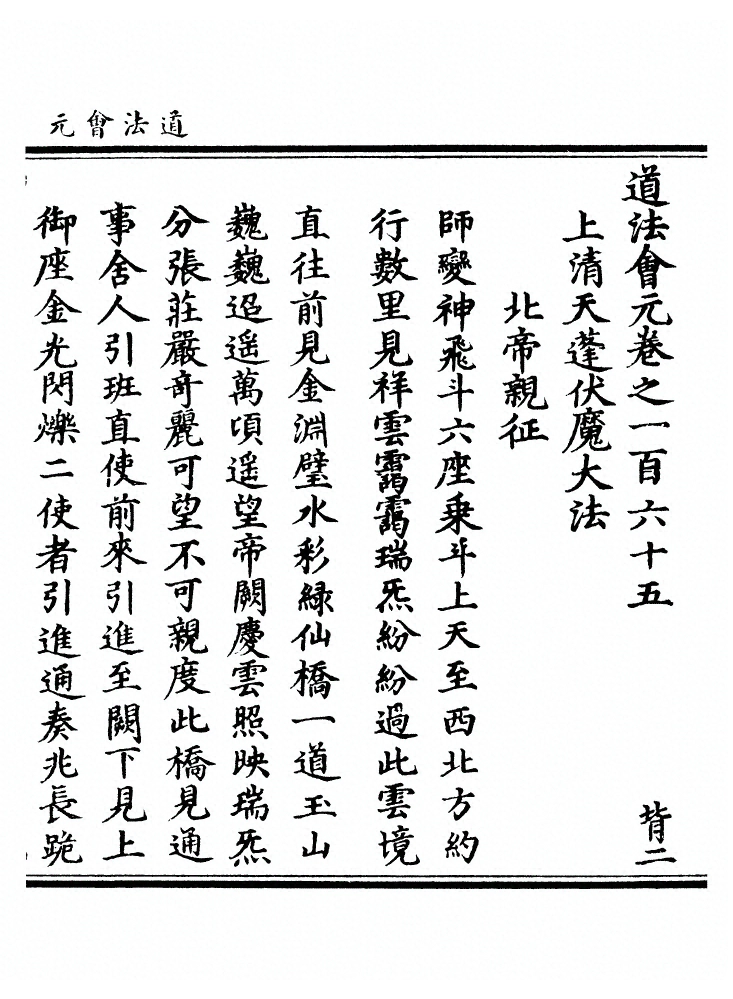 道法會元
道法會元卷之一百六十五
背二
上清天蓬伏魔大法
北帝親征
師變神飛斗六座乗斗上天至西北方約
行數里見祥雲靄靄瑞炁紛紛過此雲境
直往前見金淵璧水彩綠仙橋一道玉山
巍巍迢遥萬頃遥望帝闕慶雲照映瑞炁
分張莊嚴奇麗可望不可親度此橋見通
事舍人引班直使前來引進至闕下見上
御座金光閃爍二使者引進通奏兆長跪